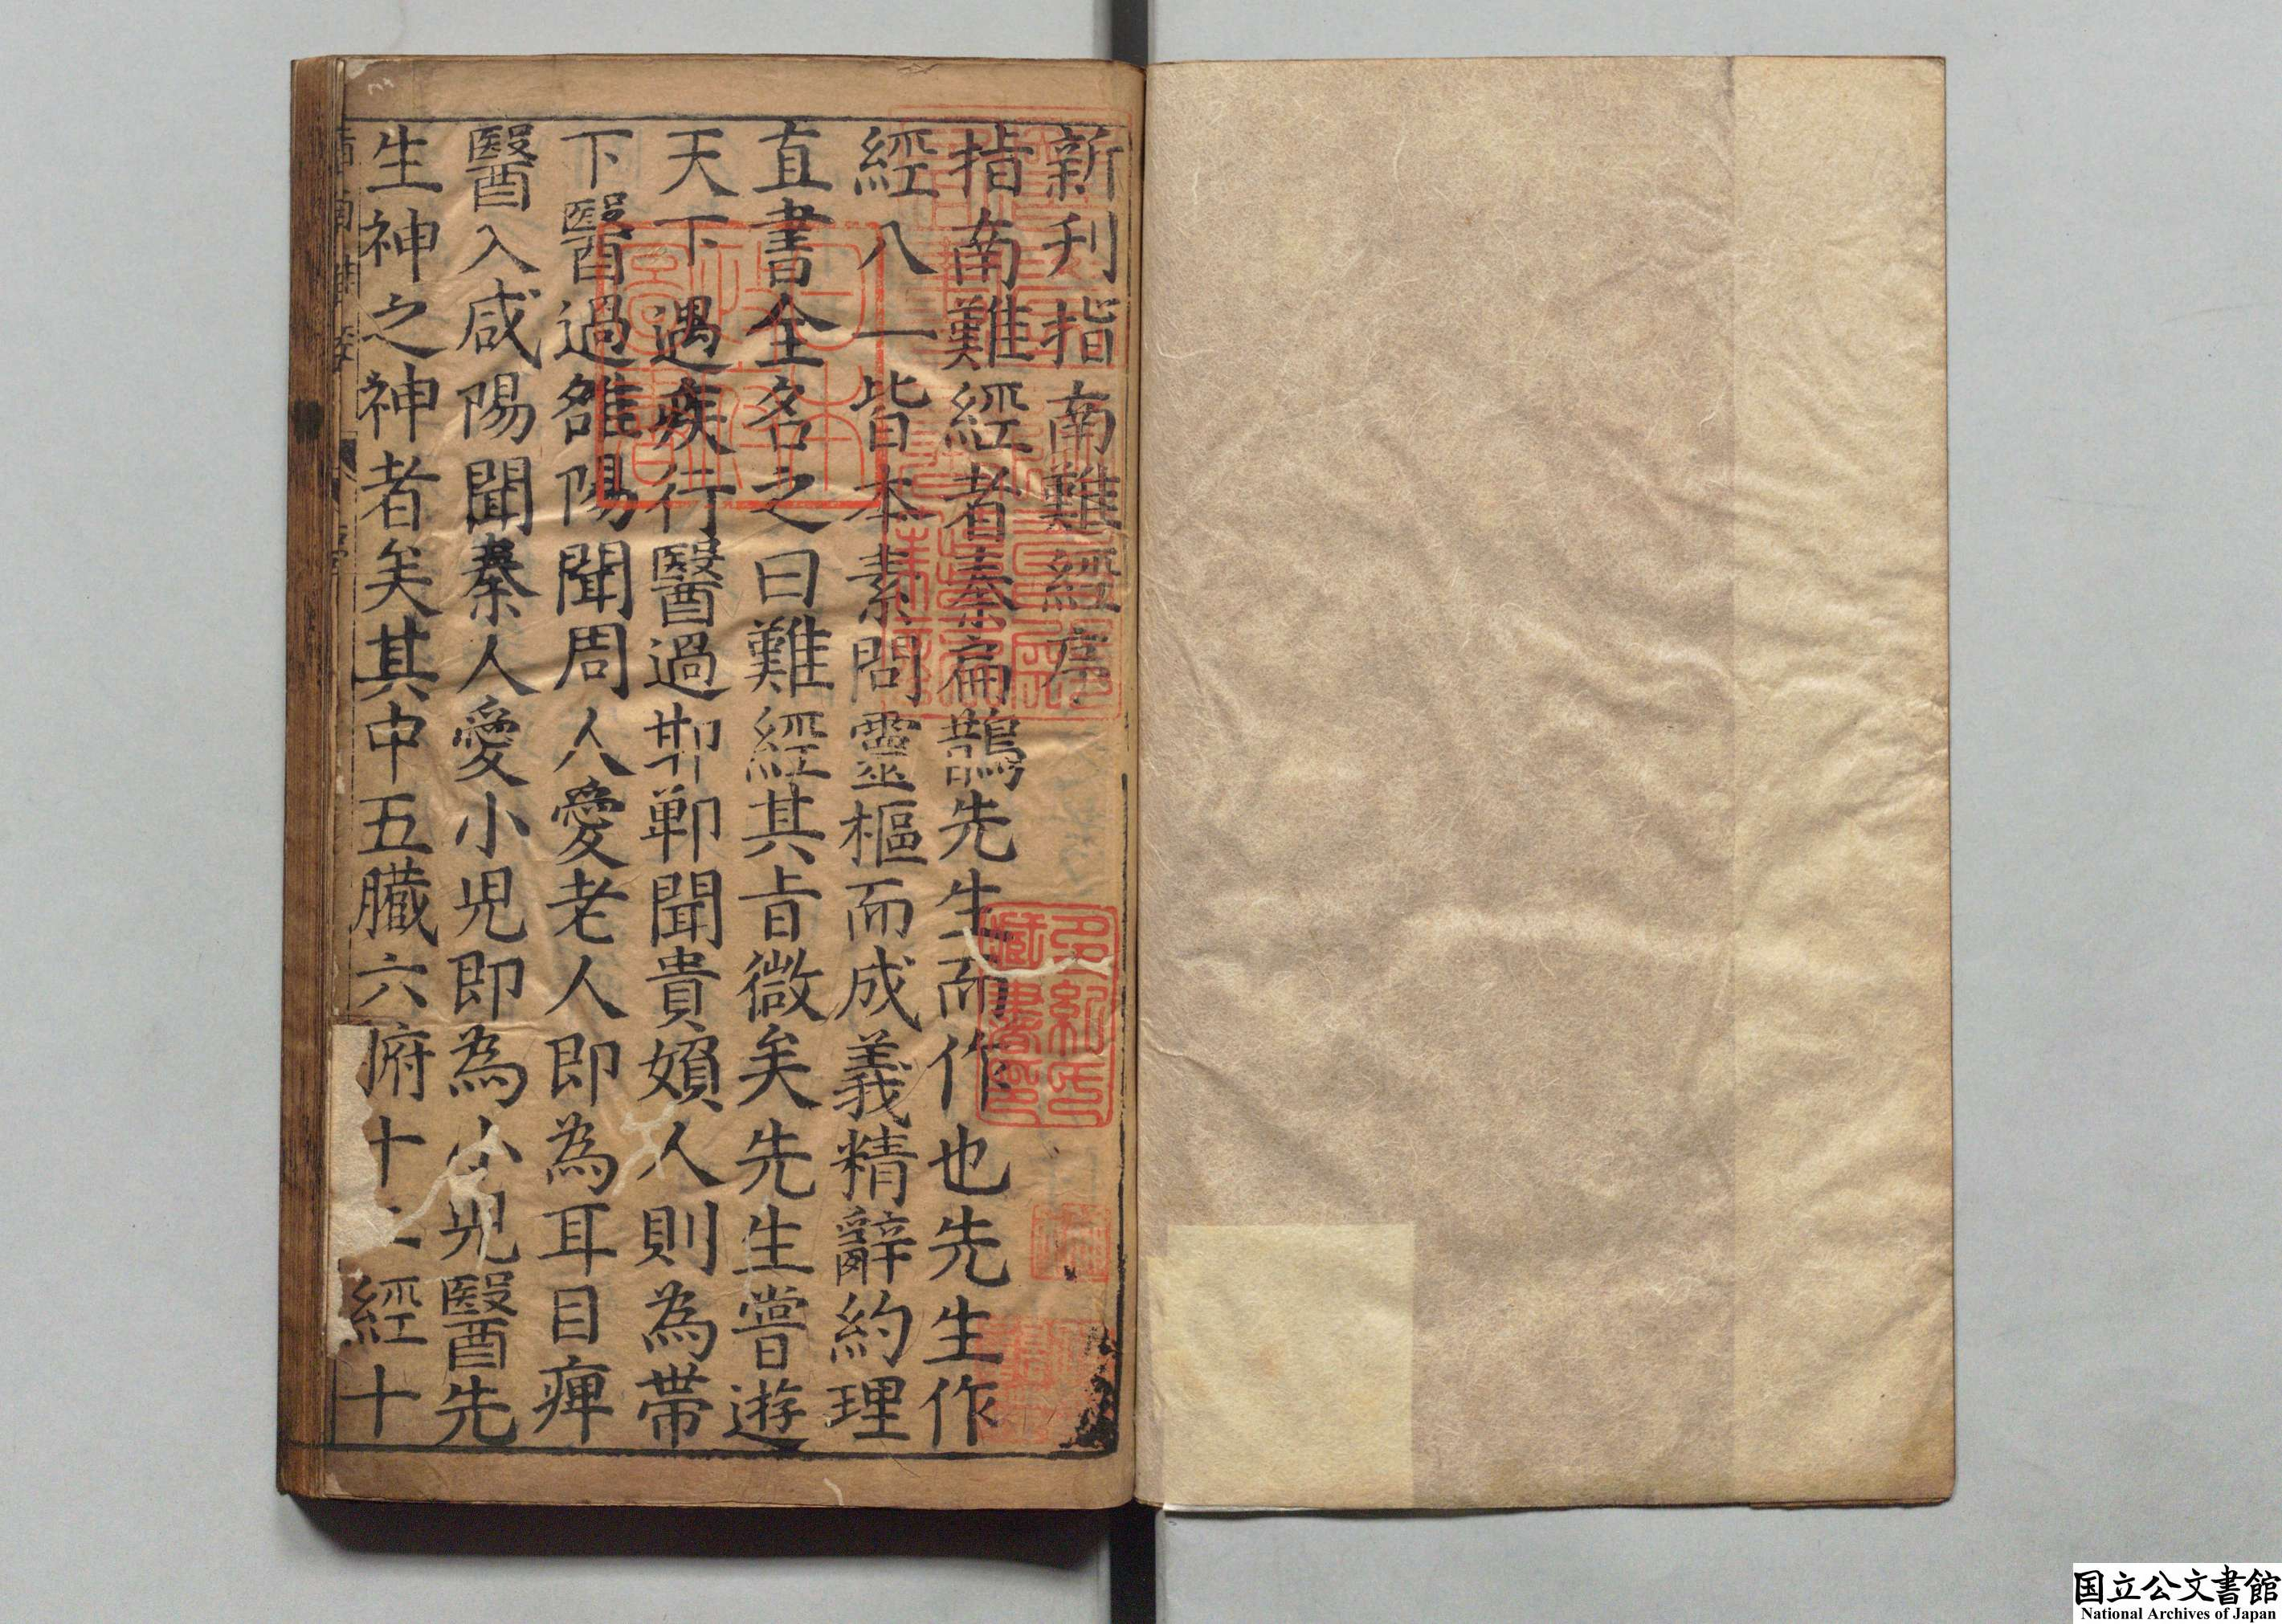 新刋指南難經序
指南難經者秦扁鵲先生而作也先生作
經八一皆本素問靈樞而成義精辭約理
直書全名之曰難經其㫖微矣先生嘗遊
天下遇疾行醫過邯鄲聞貴嬪人則為帶
下醫過雒陽聞周人愛老人即為耳目痺
醫入咸陽聞秦人愛小児即為小児醫先
生神之神者矣其中五臓六腑十二經十
多紀氏
藏書印
日本
政府
圖書
国立公文書館
National Archives of Japan